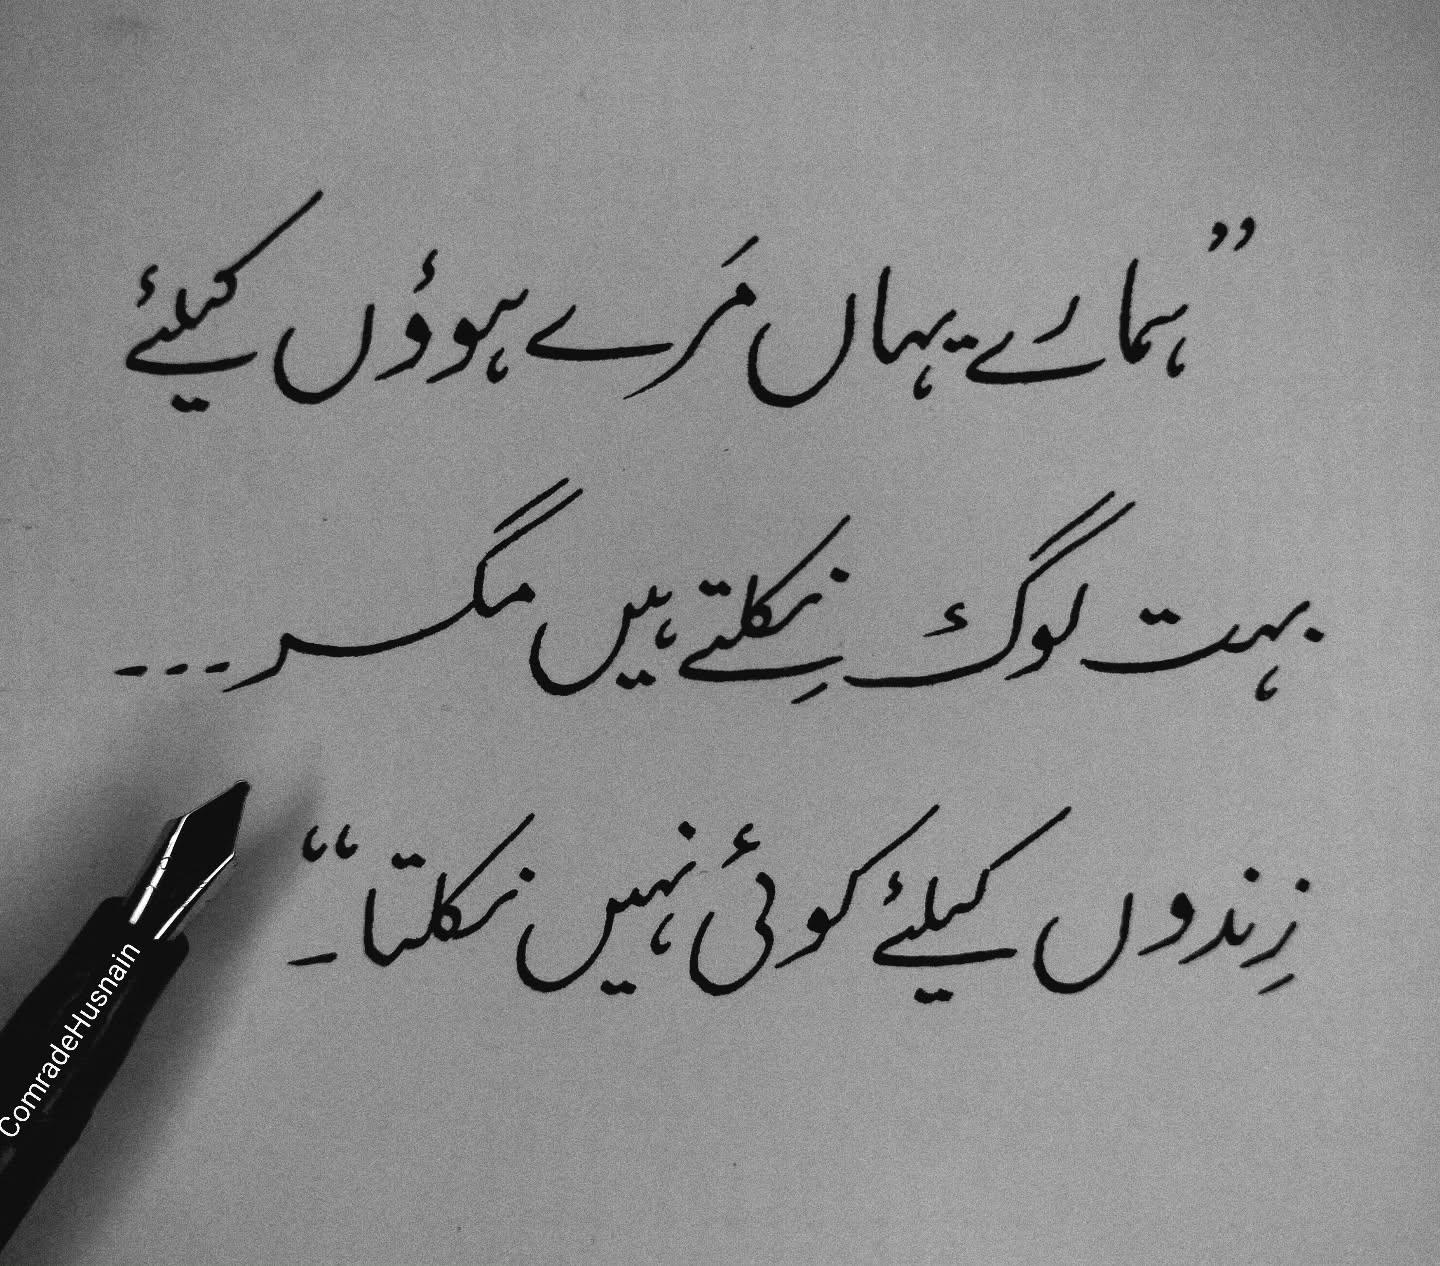 ”ہمارے یہاں مَرے ہوؤں کیلئے
بہت لوگ نِکلتے ہیں مگر۔۔۔
زِندوں کیلئے کوئی نہیں نکلتا۔“
ComradeHusnain